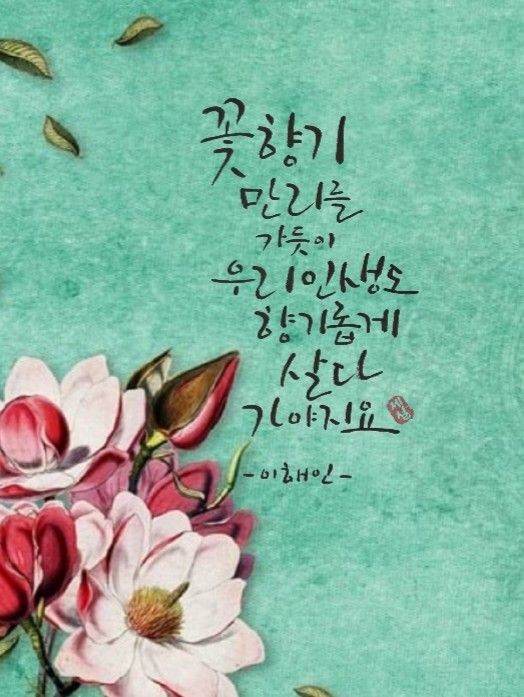 꽃향기
만리를
가듯이
우리인생도
향기롭게
살다
가야지요
-이해인-